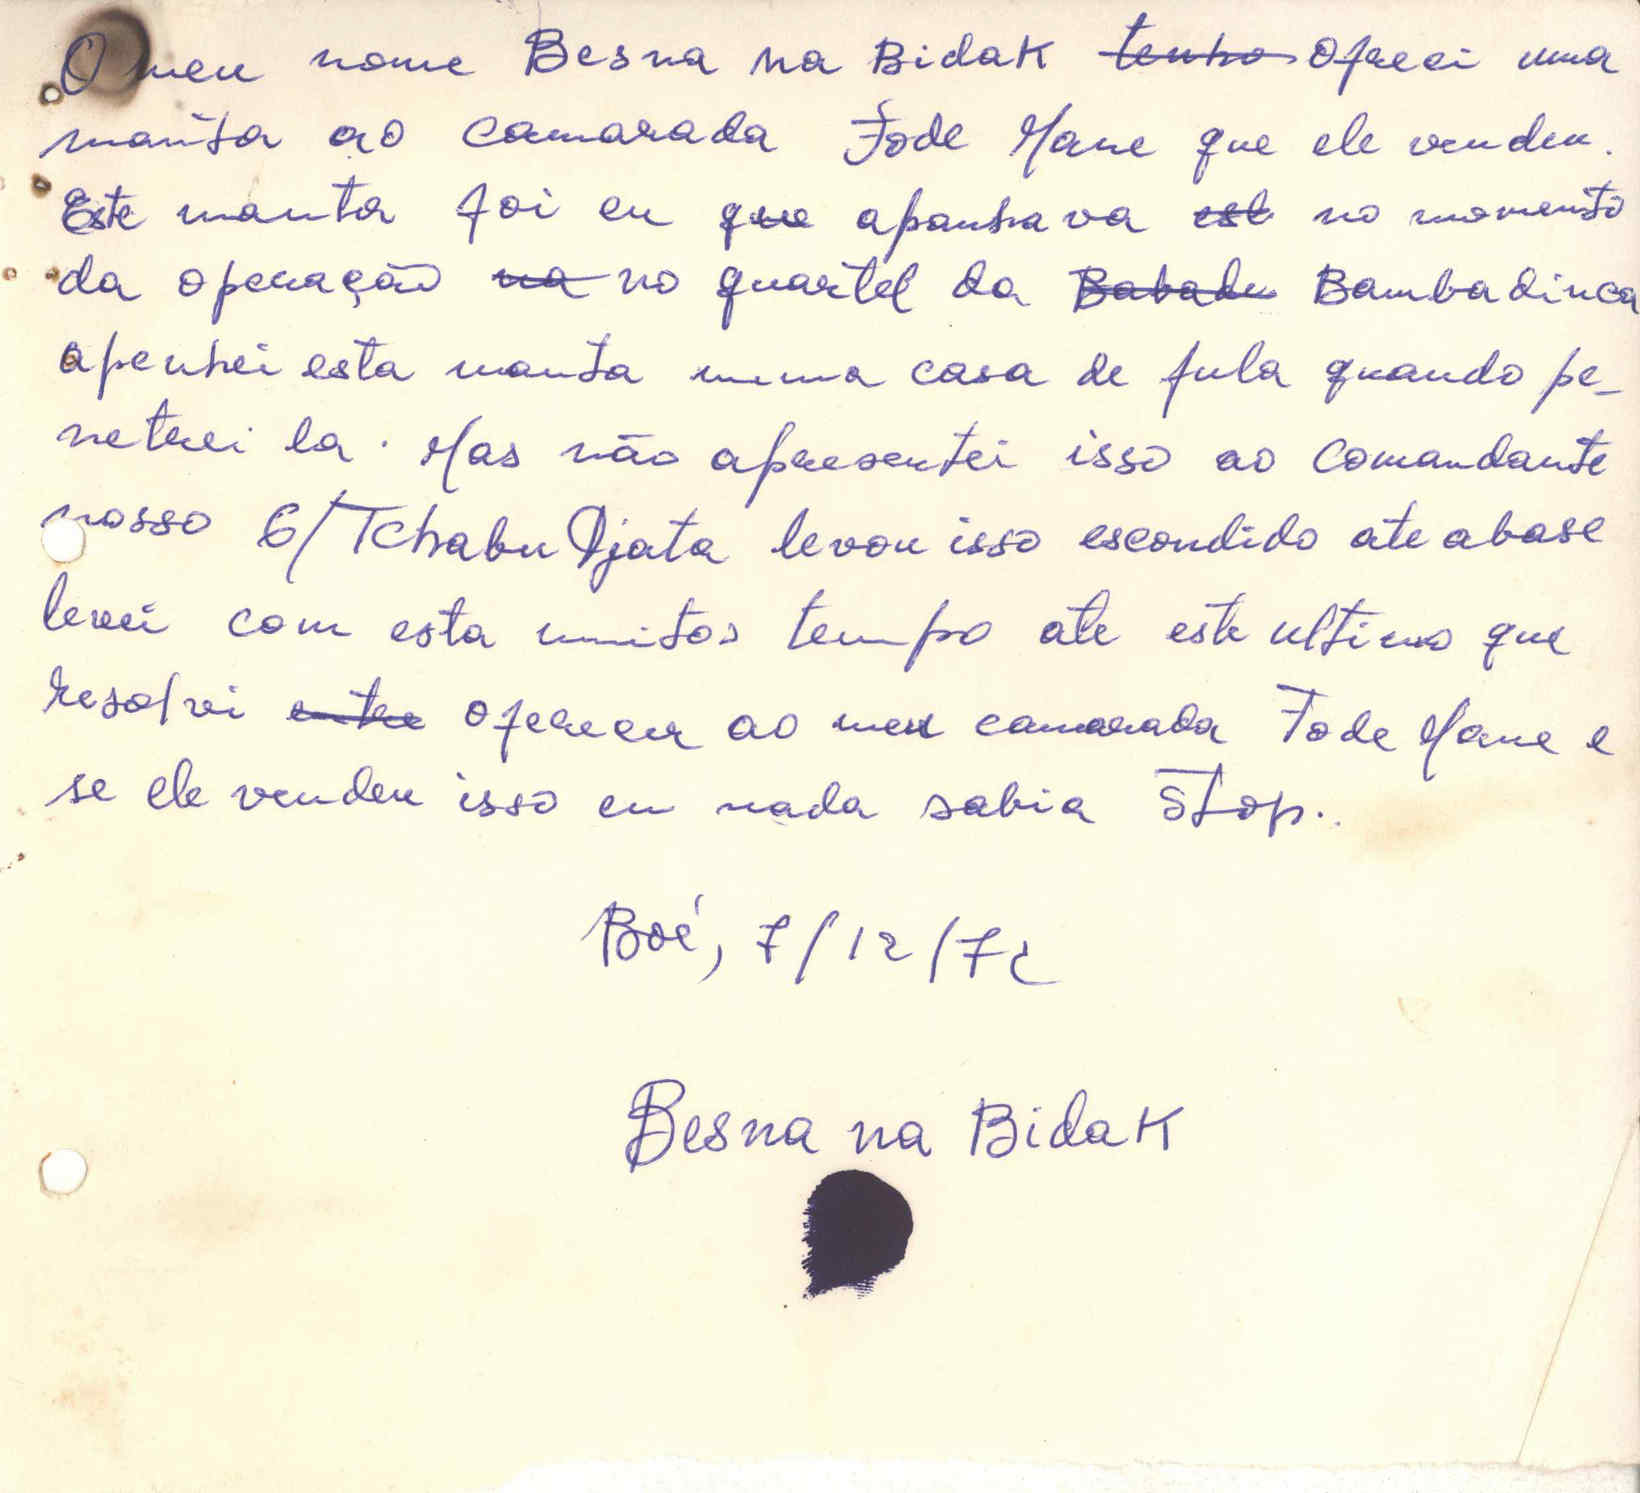 O meu nome Besna na Bidak tenho ofreci uma
manta ao camarada Fode Mane que ele vendeu.
Este manta foi eu que apanhava est no momento
da operação na no quartel da Babadu Bambadinca
apenhei esta manta numa casa de fula quando pe-
netrei la. Mas não apresentei isso ao Comandante
nosso C/Tchabu Djata levou isso escondido ate a base
levei com esta muitos tempo ate este ultimo que
resolvi entre oferecer ao meu camarada Fode Mane e
se ele vendeu isso eu nada sabia Stop..
Boé, 7/12/72
Besna na Bidak